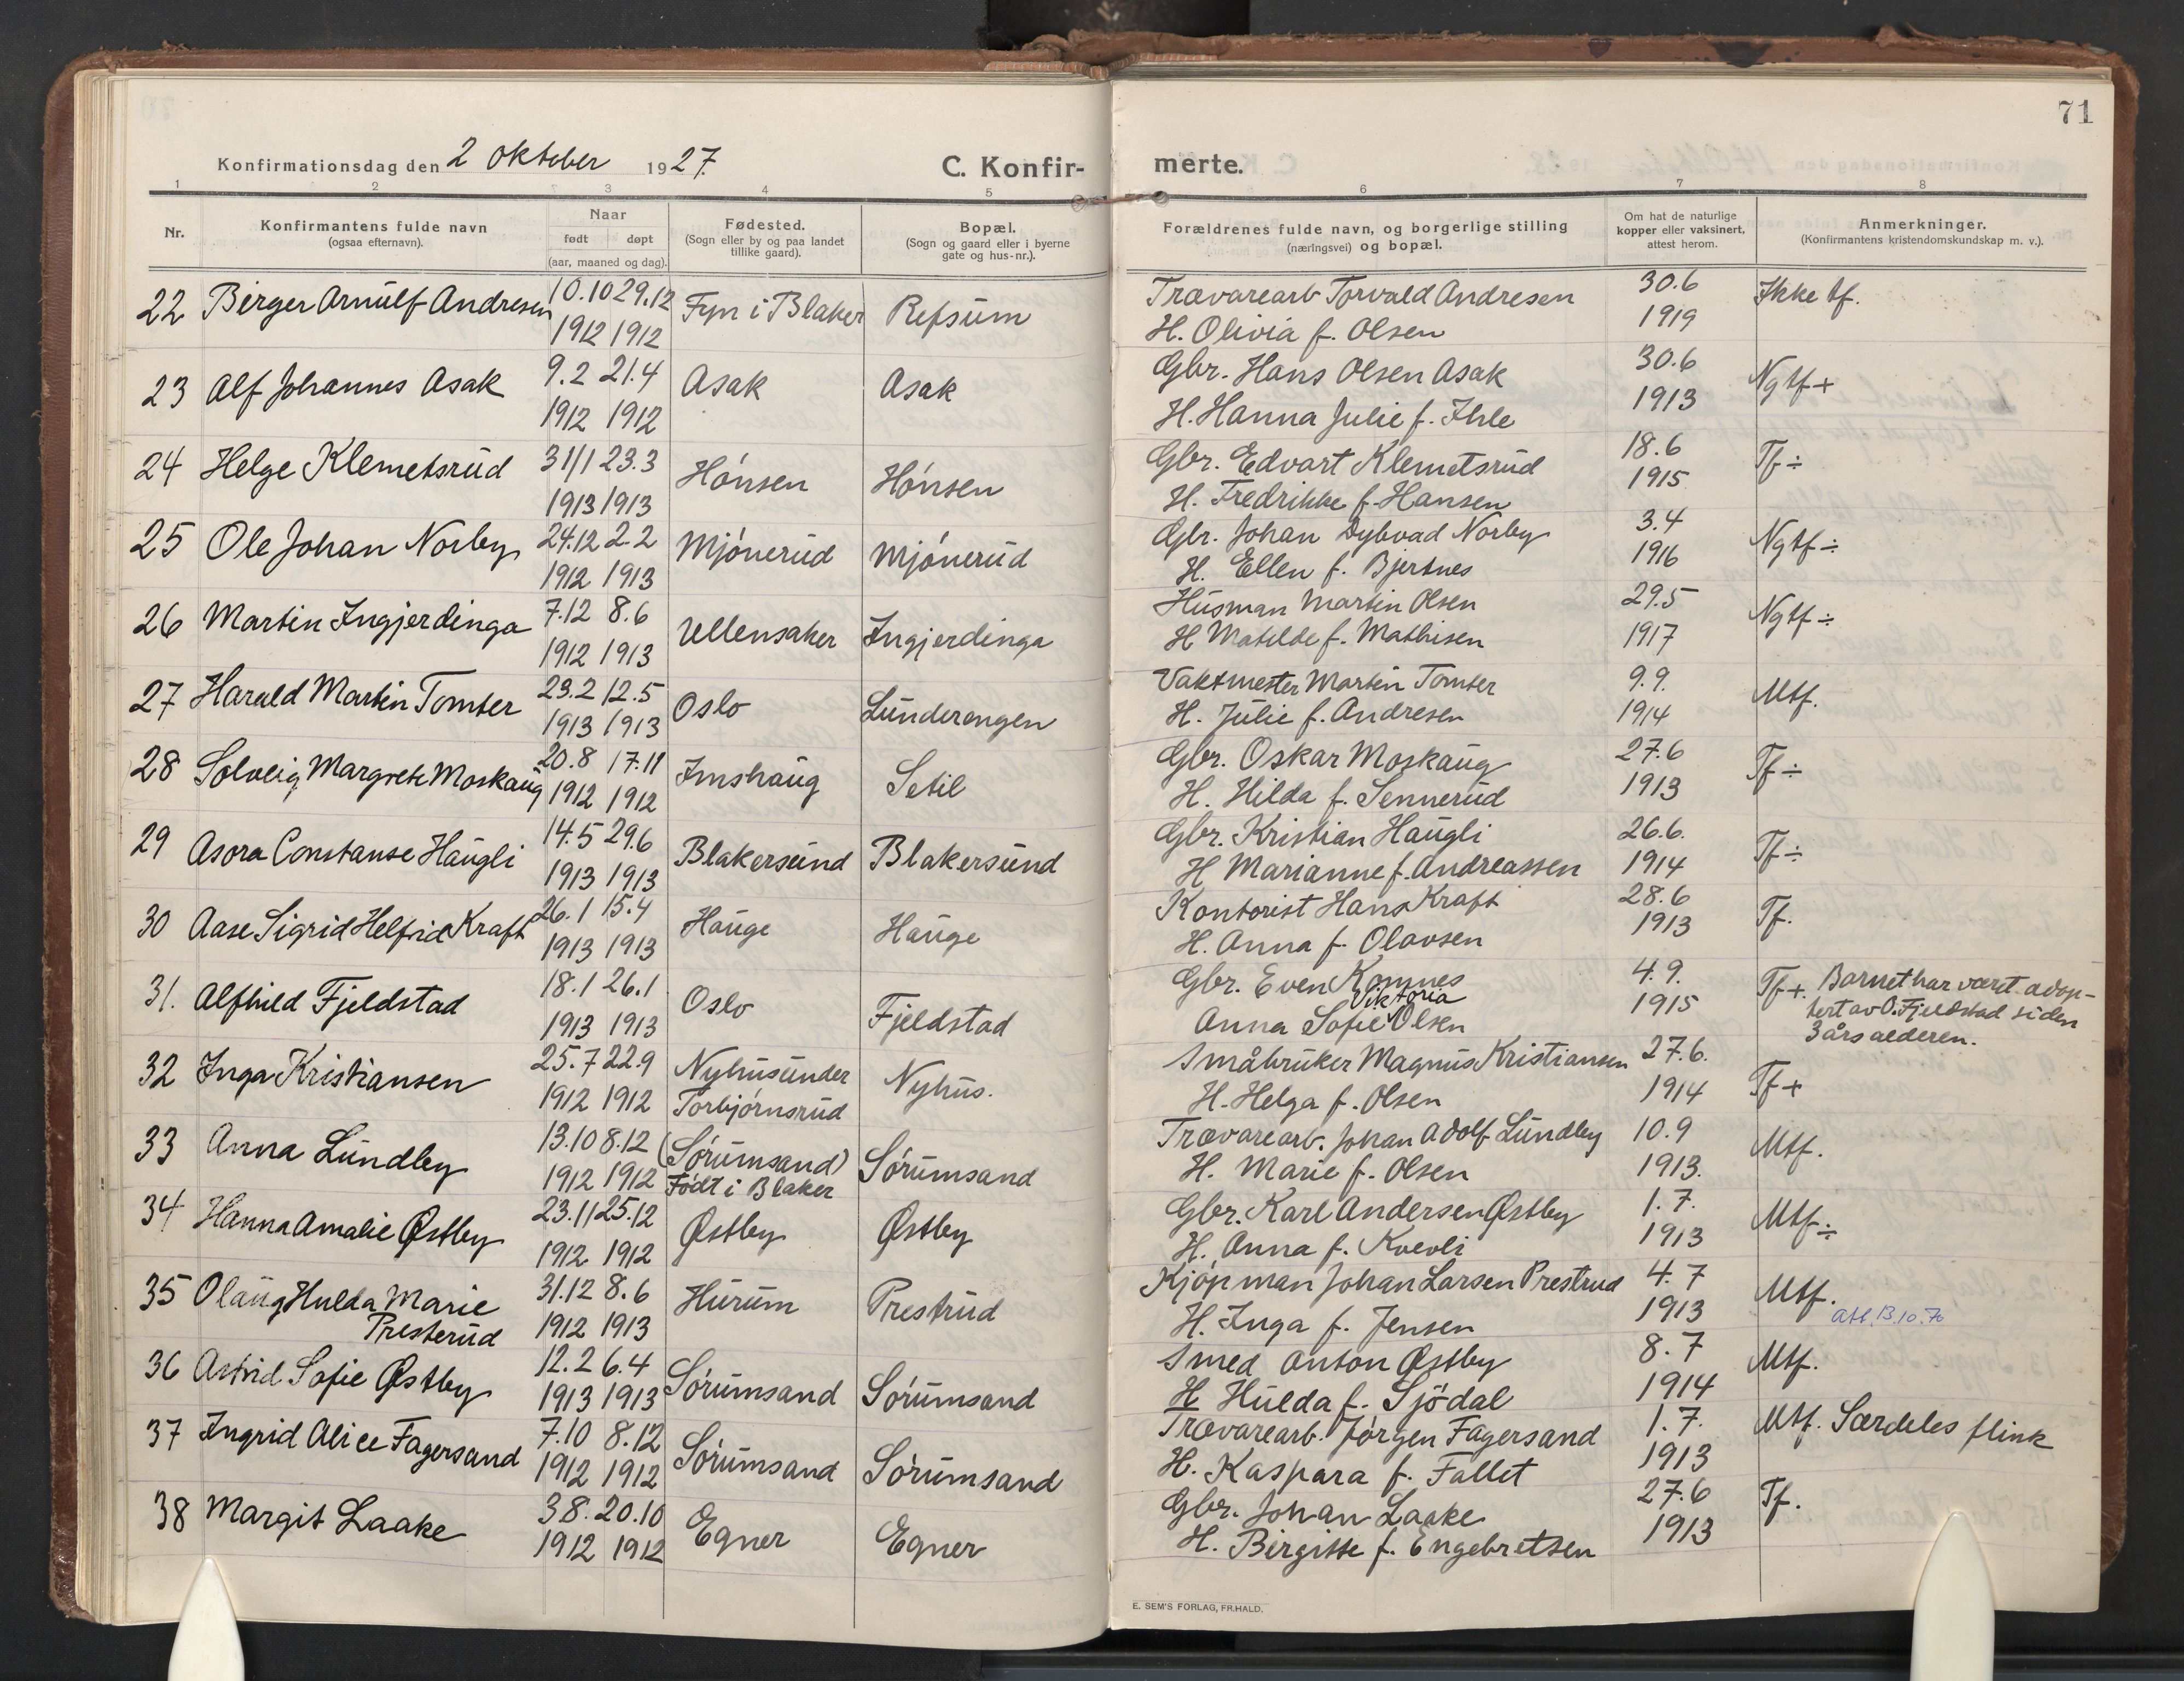 71
Konfirmationsdag den 2 Oktober 1927.
C. Konfirmerte.
1 2 3 4 5 6 7 8
Nr.
Konfirmantens fulde navn (ogsaa efternavn).
Naar født døpt (aar, maaned og dag).
Fødested. (Sogn eller by og paa landet tillike gaard).
Bopæl. (Sogn og gaard eller i byerne gate og hus-nr.).
Forældrenes fulde navn, og borgerlige stilling (næringsvei) og bopæl.
Om hat de naturlige kopper eller vaksinert, attest herom.
Anmerkninger. (Konfirmantens kristendomskundskap m. v.).
22 Birger Arnulf Andresen 10.10 29.12 Fyn i Blaker Refsum Trævarearb Torvald Andresen 30.6 Ikke tf.
1912 1912 H. Olivia f. Olsen 1919
23 Alf Johannes Asak 9.2 21.4 Asak Asak Gbr. Hans Olsen Asak 30.6 Ngtf +
1912 1912 H. Hanna Julie f. Ihle 1913
24 Helge Klemetsrud 31/1 23.3 Hónsen Hónsen Gbr. Edvart Klemetsrud 18.6 Tf ÷
1913 1913 H. Fredrikke f. Hansen 1915
25 Ole Johan Norby 24.12 2.2 Mjónerud Mjónerud Gbr. Johan Dybvad Norby 3.4 Ngtf ÷
1912 1913 H. Ellen f. Bjertnes 1916
26 Martin Ingjerdinga 7.12 8.6 Ullensaker Ingjerdinga Husman Martin Olsen 29.5 Ngtf ÷
1912 1913 H Matilde f. Mathisen 1917
27 Harald Martin Tomter 23.2 12.5 Oslo Lunderengen Vaktmester Martin Tomter 9.9. Mtf.
1913 1913 H. Julie f. Andresen 1914
28 Solveig Margrete Moskaug 20.8 17.11 Imshaug Setil Gbr. Oskar Moskaug 27.6 Tf ÷
1912 1912 H. Hilda f. Sennerud 1913
29 Asora Constanse Haugli 14.5 29.6 Blakersund Blakersund Gbr. Kristian Haugli 26.6. Tf ÷
1913 1913 H Marianne f. Andreassen 1914
30 Aase Sigrid Helfrid Kraft 26.1 15.4 Hauge Hauge Kontorist Hans Kraft 28.6 Tf.
1913 1913 H. Anna f. Olavsen 1913
31. Alfhild Fjeldstad 18.1 26.1 Oslo Fjeldstad Gbr. Even Komnes 4.9. Tf +. Barnet har vært adop-
1913 1913 Anna Sofie Viktoria Olsen 1915 tert av O. Fjeldstad siden
3 års alderen.
32 Inga Kristiansen 25.7 22.9 Nyhus under Nyhus. Småbruker Magnus Kristiansen 27.6. Tf +
1912 1912 Torbjórnsrud H. Helga f. Olsen 1914
33 Anna Lundby 13.10 8.12 (Sórumsand) Sórumsand Trævarearb. Johan Adolf Lundby 10.9 Mtf.
1912 1912 Født i Blaker H. Marie f. Olsen 1913.
34 Hanna Amalie Østby 23.11 25.12 Østby Østby Gbr. Karl Andersen Østby 1.7. Mtf ÷
1912 1912 H. Anna f. Kvevli 1913
35 Olaug Hulda Marie 31.12 8.6 Hurum Prestrud Kjópman Johan Larsen Prestrud 4.7 Mtf.
Presterud 1912 1913 H. Inga f. Jensen 1913
36 Astrid Sofie Østby 12.2 6.4 Sórumsand Sórumsand Smed Anton Østby 8.7 Mtf.
1913 1913 H Hulda f. Sjödal 1914
37 Ingrid Alice Fagersand 7.10 8.12 Sórumsand Sórumsand Trævarearb. Jórgen Fagersand 1.7. Mtf. Særdeles flink
1912 1912 H. Kaspara f. Fallet 1913
38 Margit Laake 3.8. 20.10 Egner Egner Gbr. Johan Laake 27.6 Tf.
1912 1912 H. Birgitte f. Engebretsen 1913
E. SEM'S FORLAG, FR.HALD.